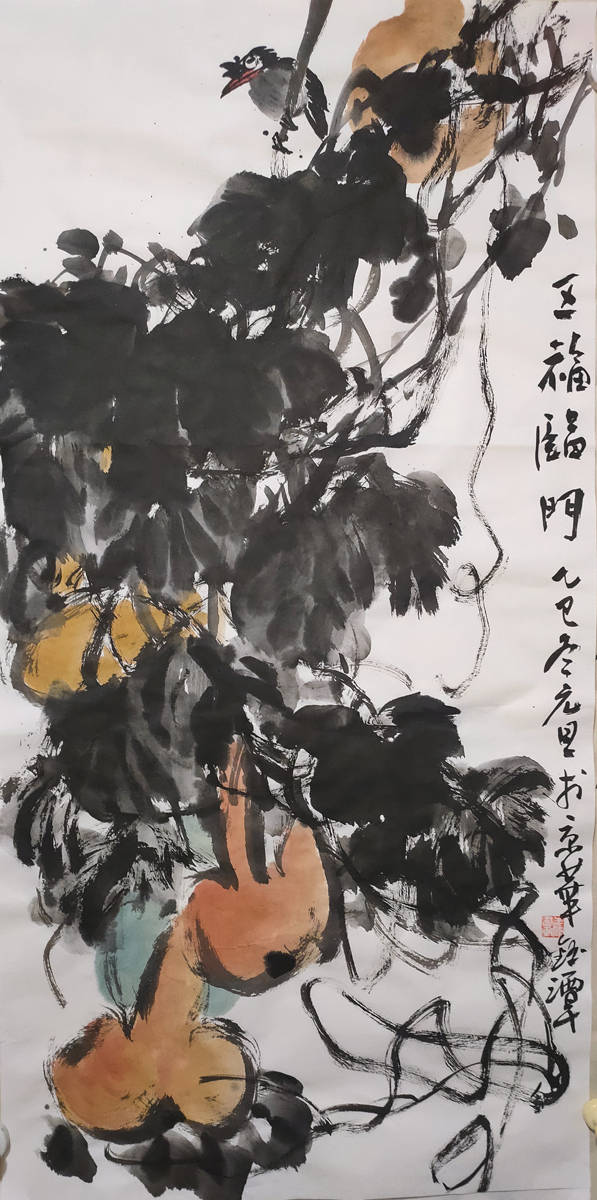 五福臨門 乙巳冬元旦於京華鈺潭